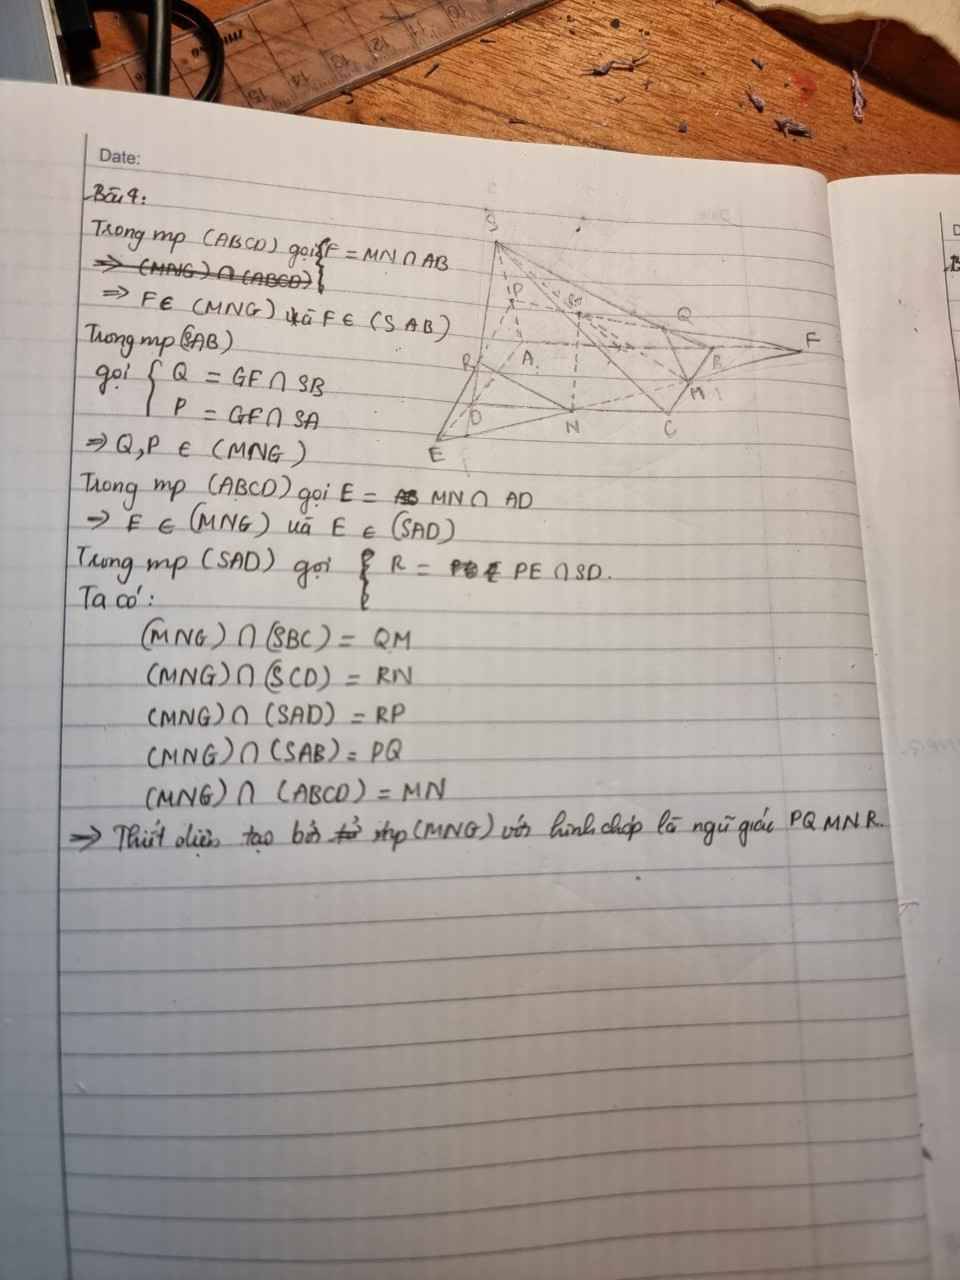 Date:
Bài 4:
Trong mp (ABCD) gọi { F = MN ∩ AB
=> (MNG) ∩ (ABCD)
=> F ∈ (MNG) và F ∈ (SAB)
Trong mp (SAB)
gọi { Q = GF ∩ SB
P = GF ∩ SA
=> Q, P ∈ (MNG)
Trong mp (ABCD) gọi E = MN ∩ AD
=> E ∈ (MNG) và E ∈ (SAD)
Trong mp (SAD) gọi { R = PE ∩ SD.
Ta có:
(MNG) ∩ (SBC) = QM
(MNG) ∩ (SCD) = RN
(MNG) ∩ (SAD) = RP
(MNG) ∩ (SAB) = PQ
(MNG) ∩ (ABCD) = MN
=> Thiết diện tạo bởi mp (MNG) với hình chóp là ngũ giác PQMNR.
S
P
G
Q
F
R
A
B
M
D
N
C
E
12
13
14
15